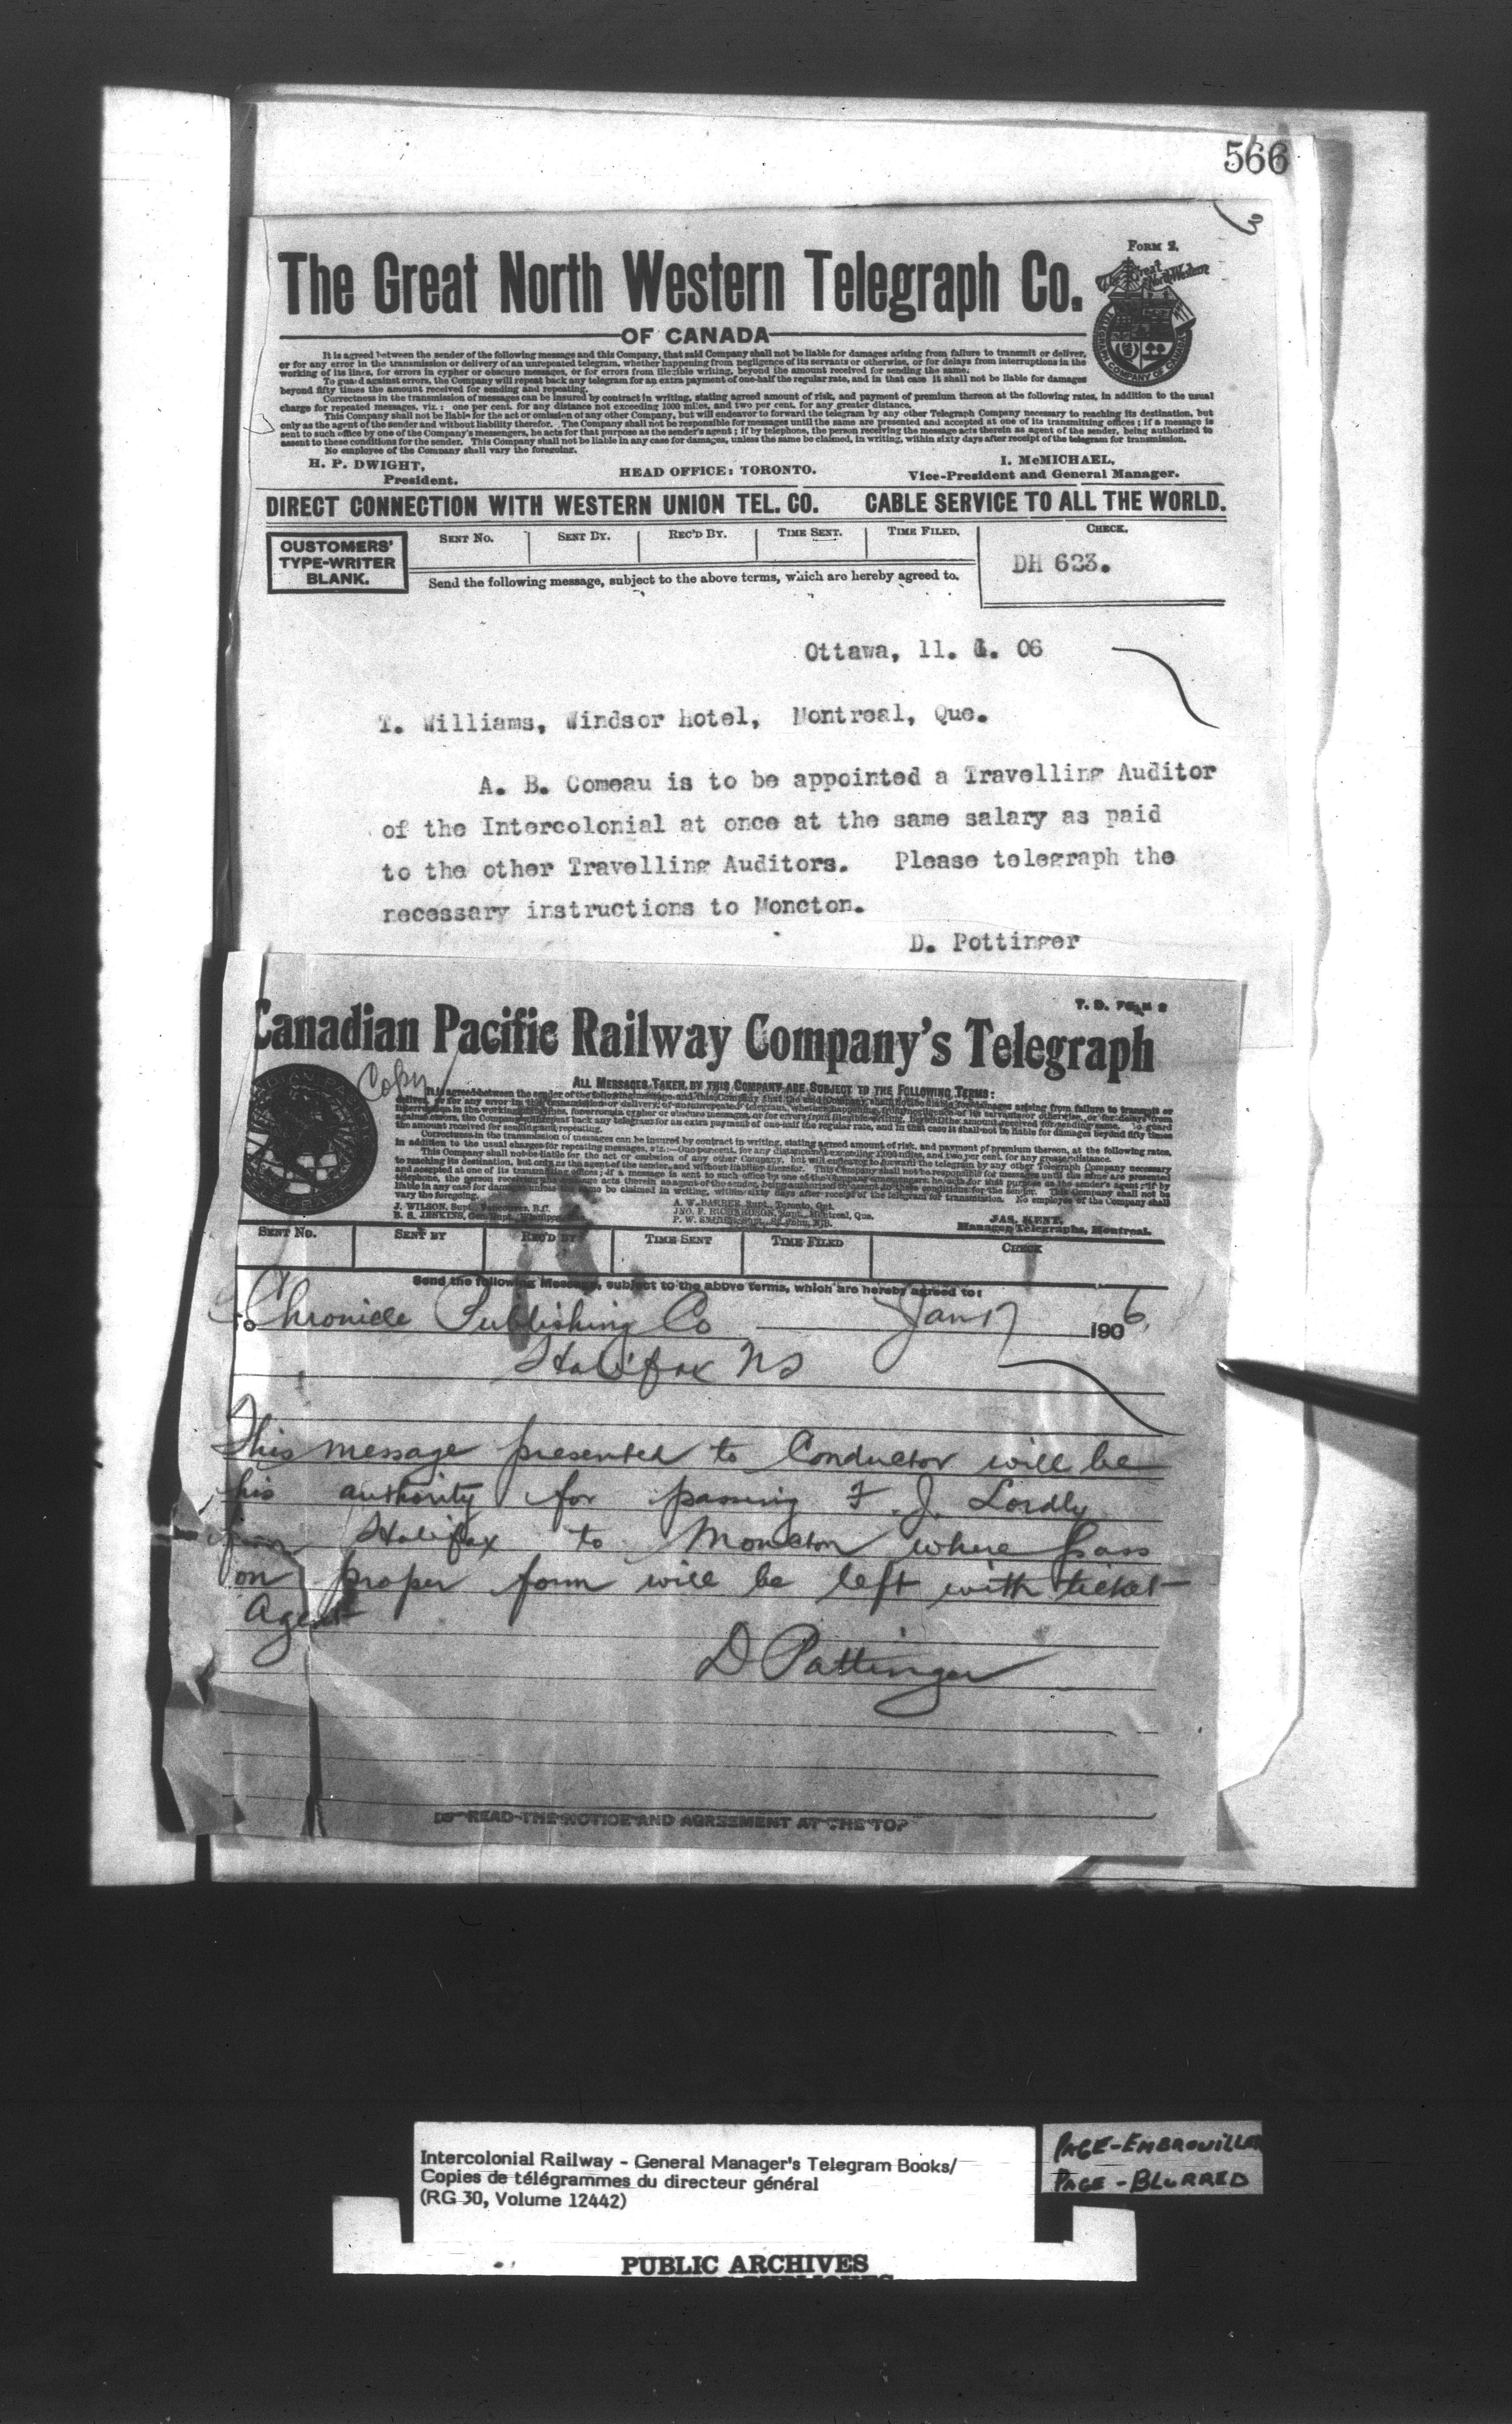 566
FORM 2.
The Great North Western Telegraph Co.
OF CANADA
It is agreed between the sender of the following message and this Company, that said Company shall not be liable for damages arising from failure to transmit or deliver,
or for any error in the transmission or delivery of an unrepeated telegram, whether happening from negligence of its servants or otherwise, or for delays from interruptions in the
working of its lines, for errors in cypher or obscure messages, or for errors from illegible writing, beyond the amount received for sending the same.
To guard against errors, the Company will repeat back any telegram for an extra payment of one-half the regular rate, and in that case it shall not be liable for damages
beyond fifty times the amount received for sending and repeating.
Correctness in the transmission of messages can be insured by contract in writing, stating agreed amount of risk, and payment of premium thereon at the following rates, in addition to the usual
charge for repeated messages, viz.: one per cent. for any distance not exceeding 1000 miles, and two per cent. for any greater distance.
This Company shall not be liable for the act or omission of any other Company, but will endeavor to forward the telegram by any other Telegraph Company necessary to reaching its destination, but
only as the agent of the sender and without liability therefor. The Company shall not be responsible for messages until the same are presented and accepted at one of its transmitting offices; if a message is
sent to such office by one of the Company's messengers, he acts for that purpose as the sender's agent; if by telephone, the person receiving the message acts therein as agent of the sender, being authorized to
assent to these conditions for the sender. This Company shall not be liable in any case for damages, unless the same be claimed, in writing, within sixty days after receipt of the telegram for transmission.
No employee of the Company shall vary the foregoing.
H. P. DWIGHT, President.
HEAD OFFICE: TORONTO.
I. McMICHAEL, Vice-President and General Manager.
DIRECT CONNECTION WITH WESTERN UNION TEL. CO. CABLE SERVICE TO ALL THE WORLD.
CUSTOMERS' TYPE-WRITER BLANK.
SENT NO. SENT BY. REC'D BY. TIME SENT. TIME FILED. CHECK.
DH 623.
Send the following message, subject to the above terms, which are hereby agreed to.
Ottawa, 11. 1. 06
T. Williams, Windsor Hotel, Montreal, Que.
A. B. Comeau is to be appointed a Travelling Auditor
of the Intercolonial at once at the same salary as paid
to the other Travelling Auditors. Please telegraph the
necessary instructions to Moncton.
D. Pottinger
T. D. FORM 2
Canadian Pacific Railway Company's Telegraph
Copy
ALL MESSAGES TAKEN BY THIS COMPANY ARE SUBJECT TO THE FOLLOWING TERMS:
the amount received for sending and repeating.
Correctness in the transmission of messages can be insured by contract in writing, stating agreed amount of risk, and payment of premium thereon, at the following rates,
vary the foregoing.
J. WILSON, Supt., Vancouver, B.C.
B. S. JENKINS, Gen. Supt., Winnipeg
A. W. BARBER, Supt., Toronto, Ont.
JNO. F. RICHARDSON, Supt., Montreal, Que.
P. W. SNIDER, Supt., St. John, N.B.
JAS. KENT,
Manager Telegraphs, Montreal.
SENT NO. SENT BY REC'D BY TIME SENT TIME FILED CHECK
Send the following Message, subject to the above terms, which are hereby agreed to:
To Chronicle Publishing Co Jan 17 1906
Halifax NS
This message presented to Conductor will be
his authority for passing F. J. Lordly
from Halifax to Moncton where pass
on proper form will be left with ticket
Agent
D Pottinger
READ THE NOTICE AND AGREEMENT AT THE TOP
Intercolonial Railway - General Manager's Telegram Books/
Copies de télégrammes du directeur général
(RG 30, Volume 12442)
PAGE-EMBROUILLER
PAGE - BLURRED
PUBLIC ARCHIVES